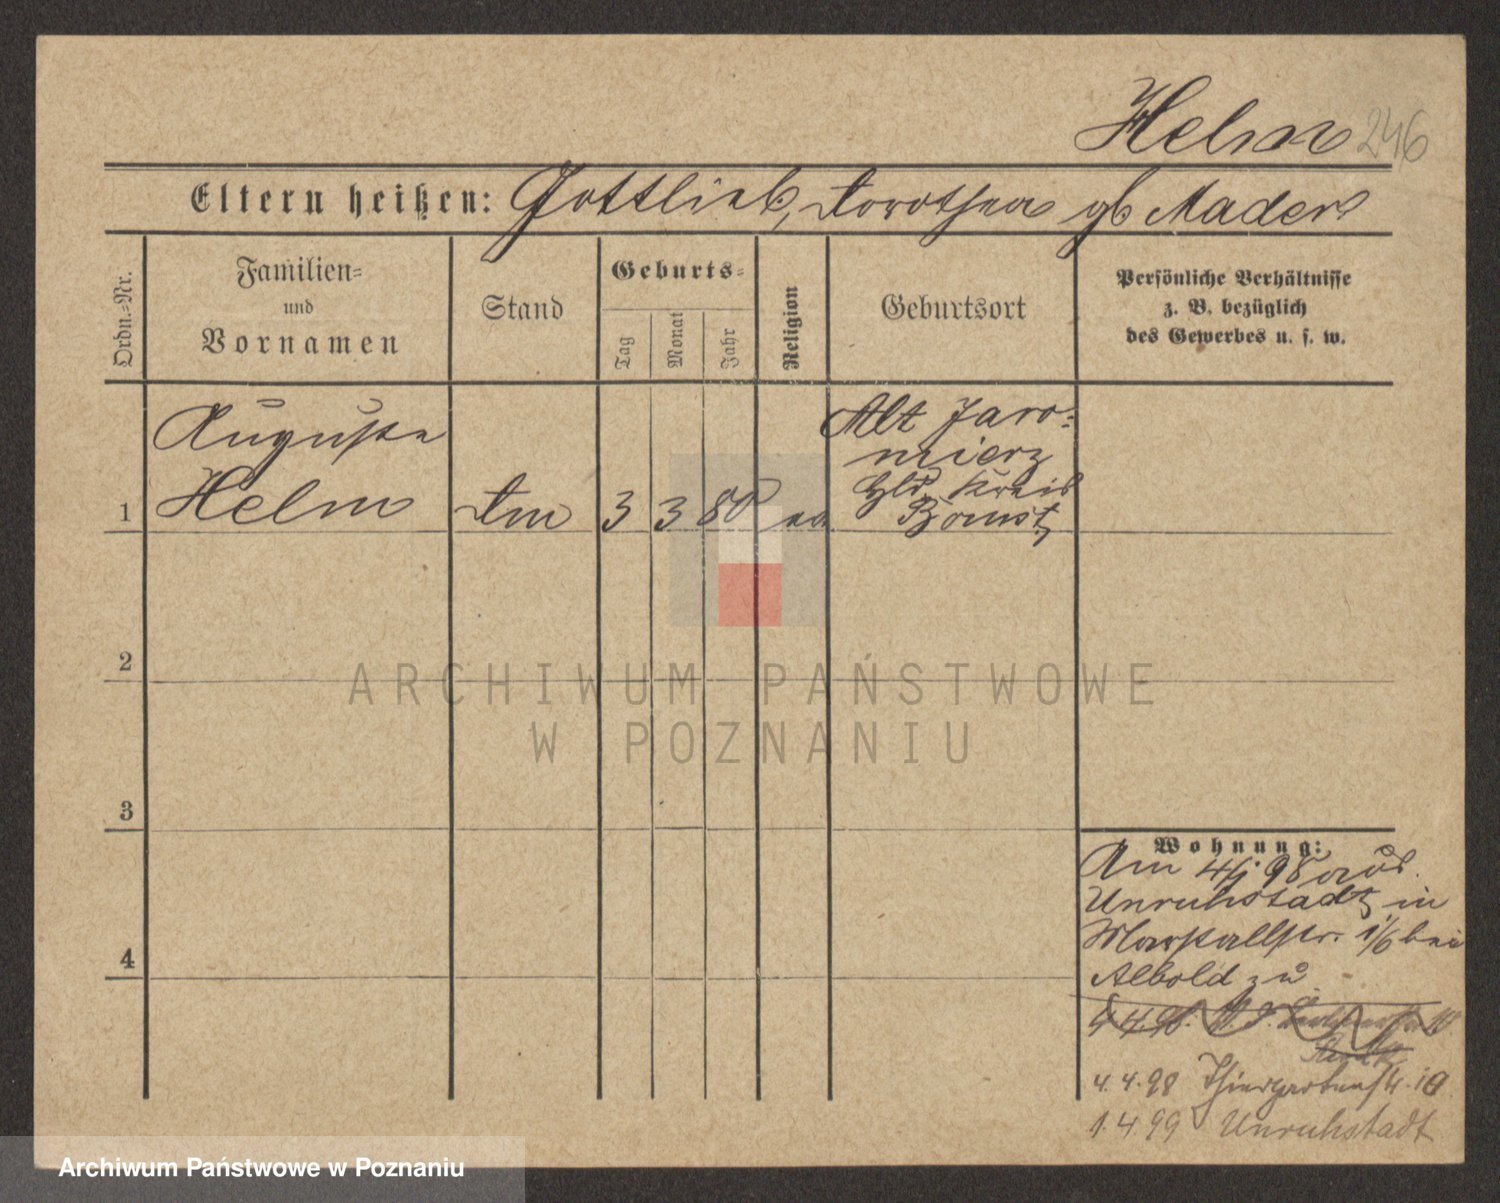 Helm 246
Eltern heißen: Gottlieb, Dorothea gb Mader
Ordn.-Nr.
Familien-
und
Vornamen
Stand
Geburts-
Tag
Monat
Jahr
Religion
Geburtsort
Persönliche Verhältnisse
z. B. bezüglich
des Gewerbes u. s. w.
Auguste
Helm
1
3 3 80
Alt Jaro-
mierz
Kreis
Bomst
2
3
4
ARCHIWUM PAŃSTWOWE
W POZNANIU
Wohnung:
Am 4/1 98 aus
Unruhstadt, in
Marstallstr. 1/6 bei
Albold zu
4.4.98.
4.4.98 Thiergartenstr. 10
1.4.99 Unruhstadt
Archiwum Państwowe w Poznaniu